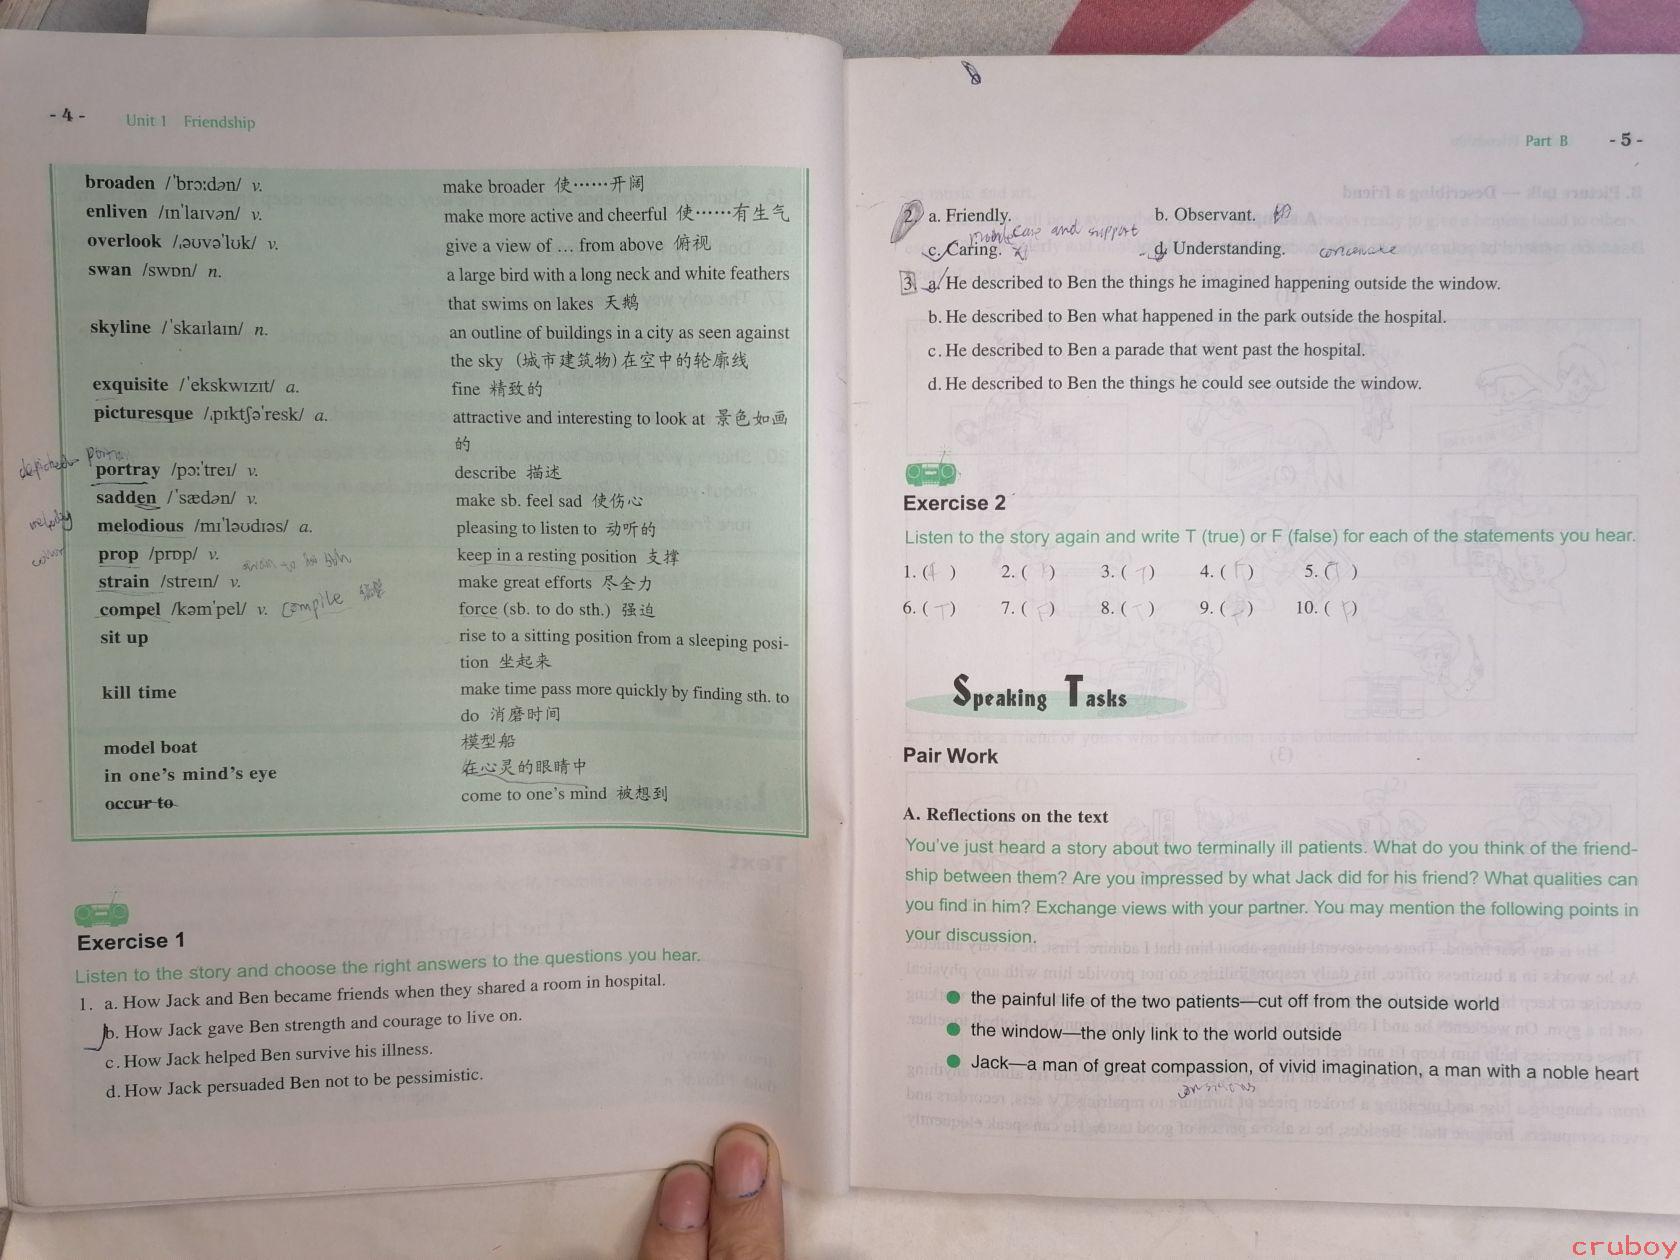 - 4 -
Unit 1 Friendship
broaden /ˈbrɔ:dən/ v. make broader 使……开阔
enliven /ɪnˈlaɪvən/ v. make more active and cheerful 使……有生气
overlook /ˌəʊvəˈlʊk/ v. give a view of ... from above 俯视
swan /swɒn/ n. a large bird with a long neck and white feathers
that swims on lakes 天鹅
skyline /ˈskaɪlaɪn/ n. an outline of buildings in a city as seen against
the sky (城市建筑物)在空中的轮廓线
exquisite /ˈekskwɪzɪt/ a. fine 精致的
picturesque /ˌpɪktʃəˈresk/ a. attractive and interesting to look at 景色如画
的
portray /pɔ:ˈtreɪ/ v. describe 描述
sadden /ˈsædən/ v. make sb. feel sad 使伤心
melody
melodious /mɪˈləʊdɪəs/ a. pleasing to listen to 动听的
prop /prɒp/ v. keep in a resting position 支撑
strain /streɪn/ v. make great efforts 尽全力
compel /kəmˈpel/ v. compile force (sb. to do sth.) 强迫
sit up rise to a sitting position from a sleeping posi-
tion 坐起来
kill time make time pass more quickly by finding sth. to
do 消磨时间
model boat 模型船
in one's mind's eye 在心灵的眼睛中
occur to come to one's mind 被想到
Exercise 1
Listen to the story and choose the right answers to the questions you hear.
1. a. How Jack and Ben became friends when they shared a room in hospital.
b. How Jack gave Ben strength and courage to live on.
c. How Jack helped Ben survive his illness.
d. How Jack persuaded Ben not to be pessimistic.
Part B - 5 -
2. a. Friendly. b. Observant.
care and support
c. Caring. d. Understanding.
3. a. He described to Ben the things he imagined happening outside the window.
b. He described to Ben what happened in the park outside the hospital.
c. He described to Ben a parade that went past the hospital.
d. He described to Ben the things he could see outside the window.
Exercise 2
Listen to the story again and write T (true) or F (false) for each of the statements you hear.
1. ( ) 2. ( ) 3. (T) 4. (F) 5. ( )
6. (T) 7. (F) 8. (T) 9. (F) 10. (F)
Speaking Tasks
Pair Work
A. Reflections on the text
You've just heard a story about two terminally ill patients. What do you think of the friend-
ship between them? Are you impressed by what Jack did for his friend? What qualities can
you find in him? Exchange views with your partner. You may mention the following points in
your discussion.
● the painful life of the two patients—cut off from the outside world
● the window—the only link to the world outside
● Jack—a man of great compassion, of vivid imagination, a man with a noble heart
cruboy